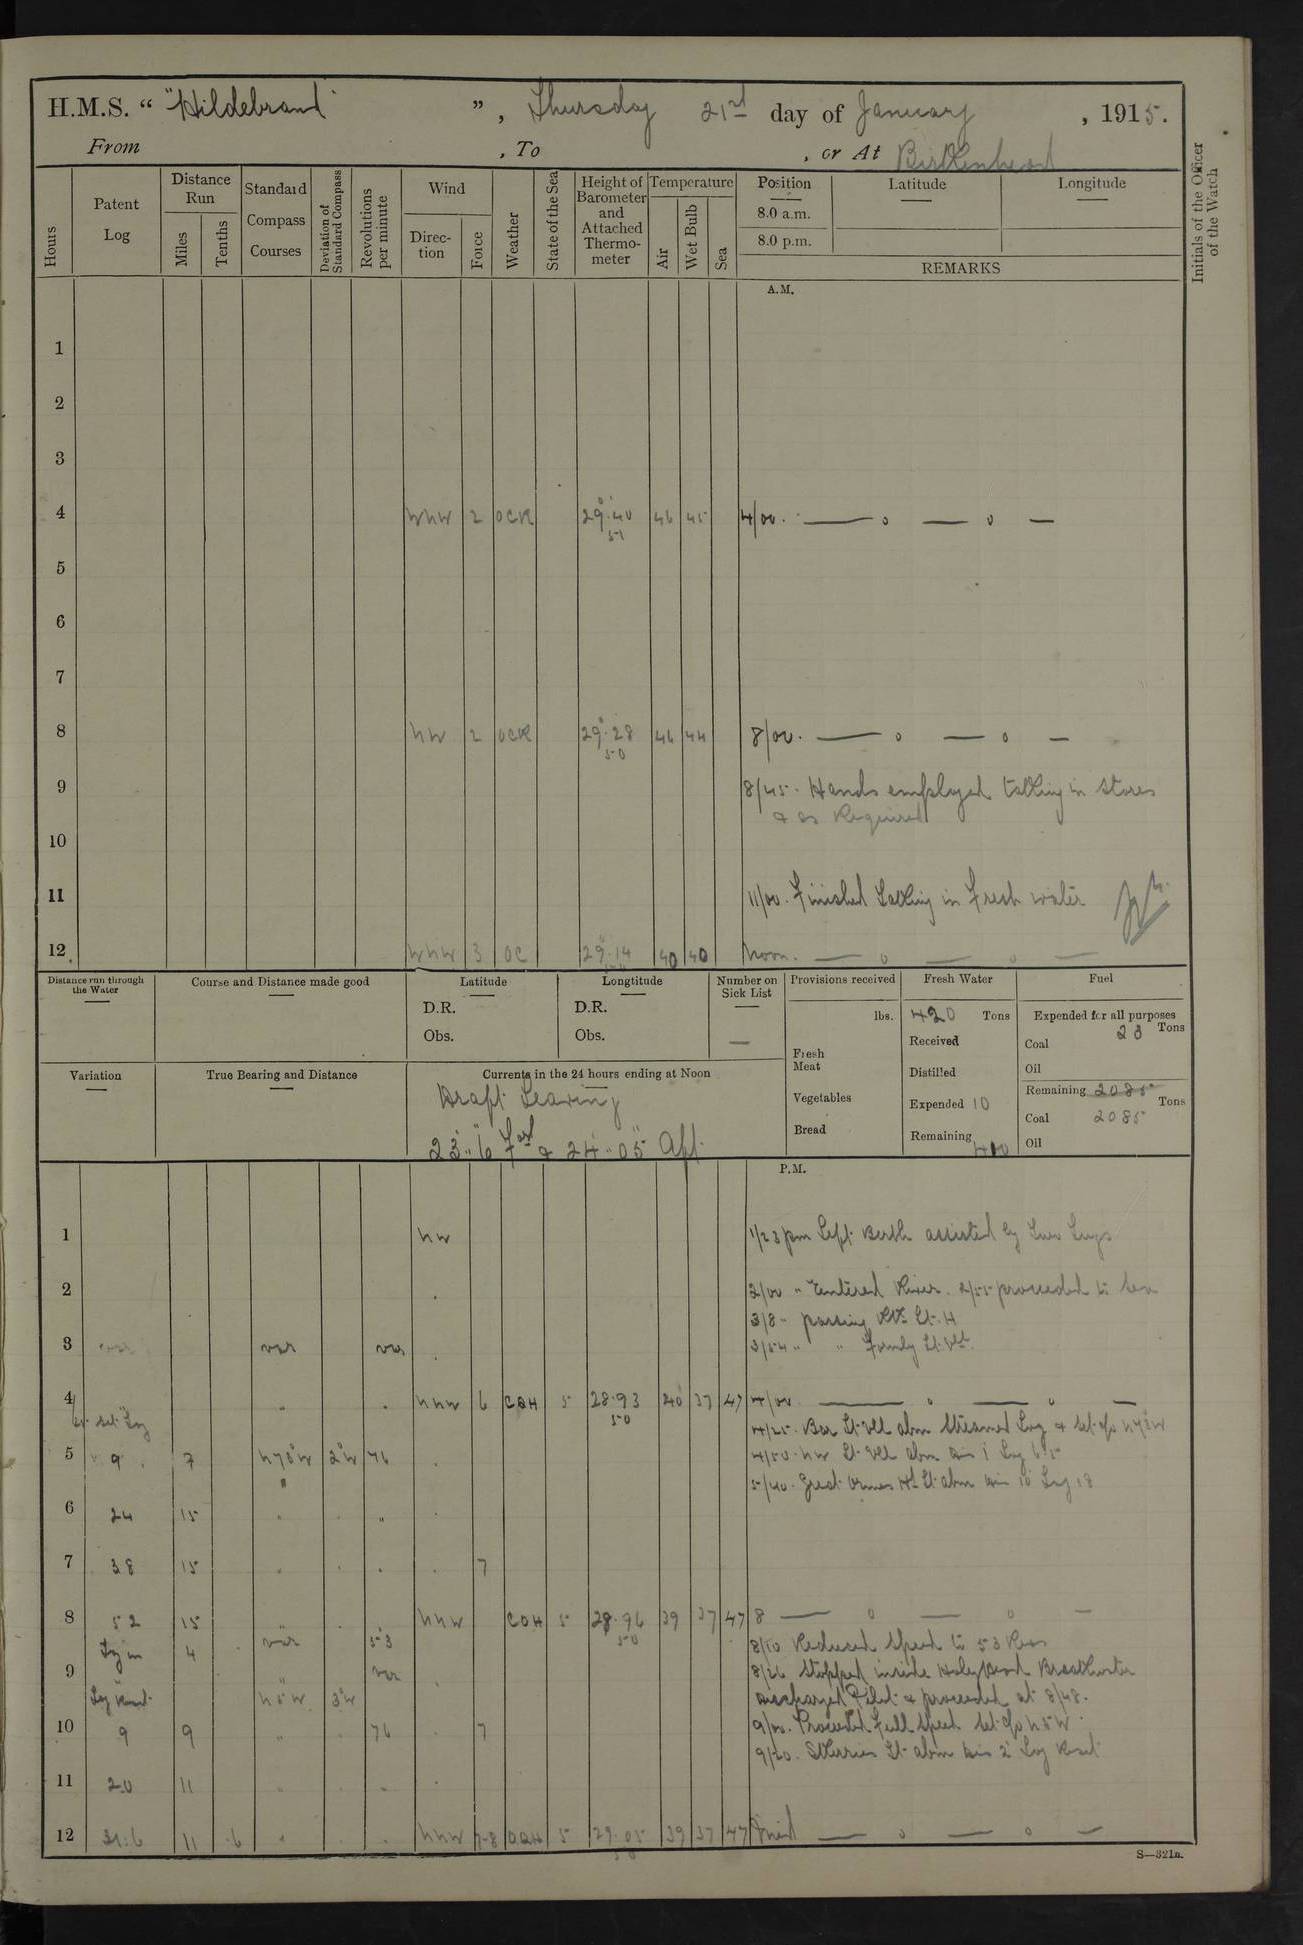 H.M.S. “ "Hildebrand" ”, Thursday 21st day of January, 1915.
From , To , or At Birkenhead
Hours
Patent Log
Distance Run
Miles
Tenths
Standard Compass Courses
Deviation of Standard Compass
Revolutions per minute
Wind
Direction
Force
Weather
State of the Sea
Height of Barometer and Attached Thermometer
Temperature
Air
Wet Bulb
Sea
Position
8.0 a.m.
8.0 p.m.
Latitude
Longitude
REMARKS
Initials of the Officer of the Watch
A.M.
1
2
3
4 WNW 2 OCR 29.40 51 46 45 4/00. — o — o —
5
6
7
8 NW 2 OCR 29.28 50 46 44 8/00. — o — o —
9 8/45. Hands employed taking in stores
& as Required
10
11 11/00. Finished taking in Fresh water
12 WNW 3 OC 29.14 40 40 Noon. — o — o —
Distance run through the Water
Course and Distance made good
Latitude
D.R.
Obs.
Longtitude
D.R.
Obs.
Number on Sick List
—
Provisions received
lbs.
Fresh Meat
Vegetables
Bread
Fresh Water
420 Tons
Received
Distilled
Expended 10
Remaining 410
Fuel
Expended for all purposes
23 Tons
Coal
Oil
Remaining 2085 Tons
Coal 2085
Oil
Variation
True Bearing and Distance
Currents in the 24 hours ending at Noon
Draft Leaving
23'.. 6" For'd & 24'.. 05" Aft.
P.M.
1 NW 1/23 pm Left Berth assisted by Tugs
2 2/00 " Entered River. 2/55 proceeded to Sea
3/8 " passing Rk Lt. H
3 var var var 3/54 " " Formby Lt. Vsl.
4 " NNW 6 CQH 5 28.93 50 40 37 47 4/00 — o — o —
set Log
4/25. Bar Lt Vsl abm Streamed Log & set c/o N78W
5 9 7 N78°W 2°W 76 4/50. NW Lt Vsl abm dis 1' Log 6.5
5/40. Great Ormes Hd Lt abm dis 10' Log 18
6 24 15 " "
7 38 15 7
8 52 15 " NNW COH 5 28.96 50 39 37 47 8 — o — o —
Log in 4 var 53 8/10 Reduced Speed to 53 Revs
9 " var 8/26 Stopped inside Holyhead Breakwater
Log Reset N5W 3°W discharged Pilot & proceeded at 8/48.
10 9 9 " 76 7 9/00. Proceeded full speed set c/o N5W.
9/20. Skerries Lt abm dis 2' Log Reset
11 20 11
12 31.6 11 .6 NNW 7-8 OQH 5 29.05 50 39 37 47 Mid — o — o —
S—321a.